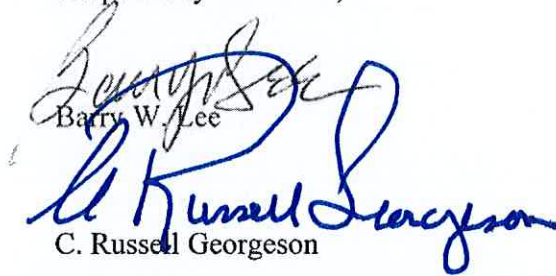 Barry Lee
Barry W. Lee
C Russell Georgeson
C. Russell Georgeson